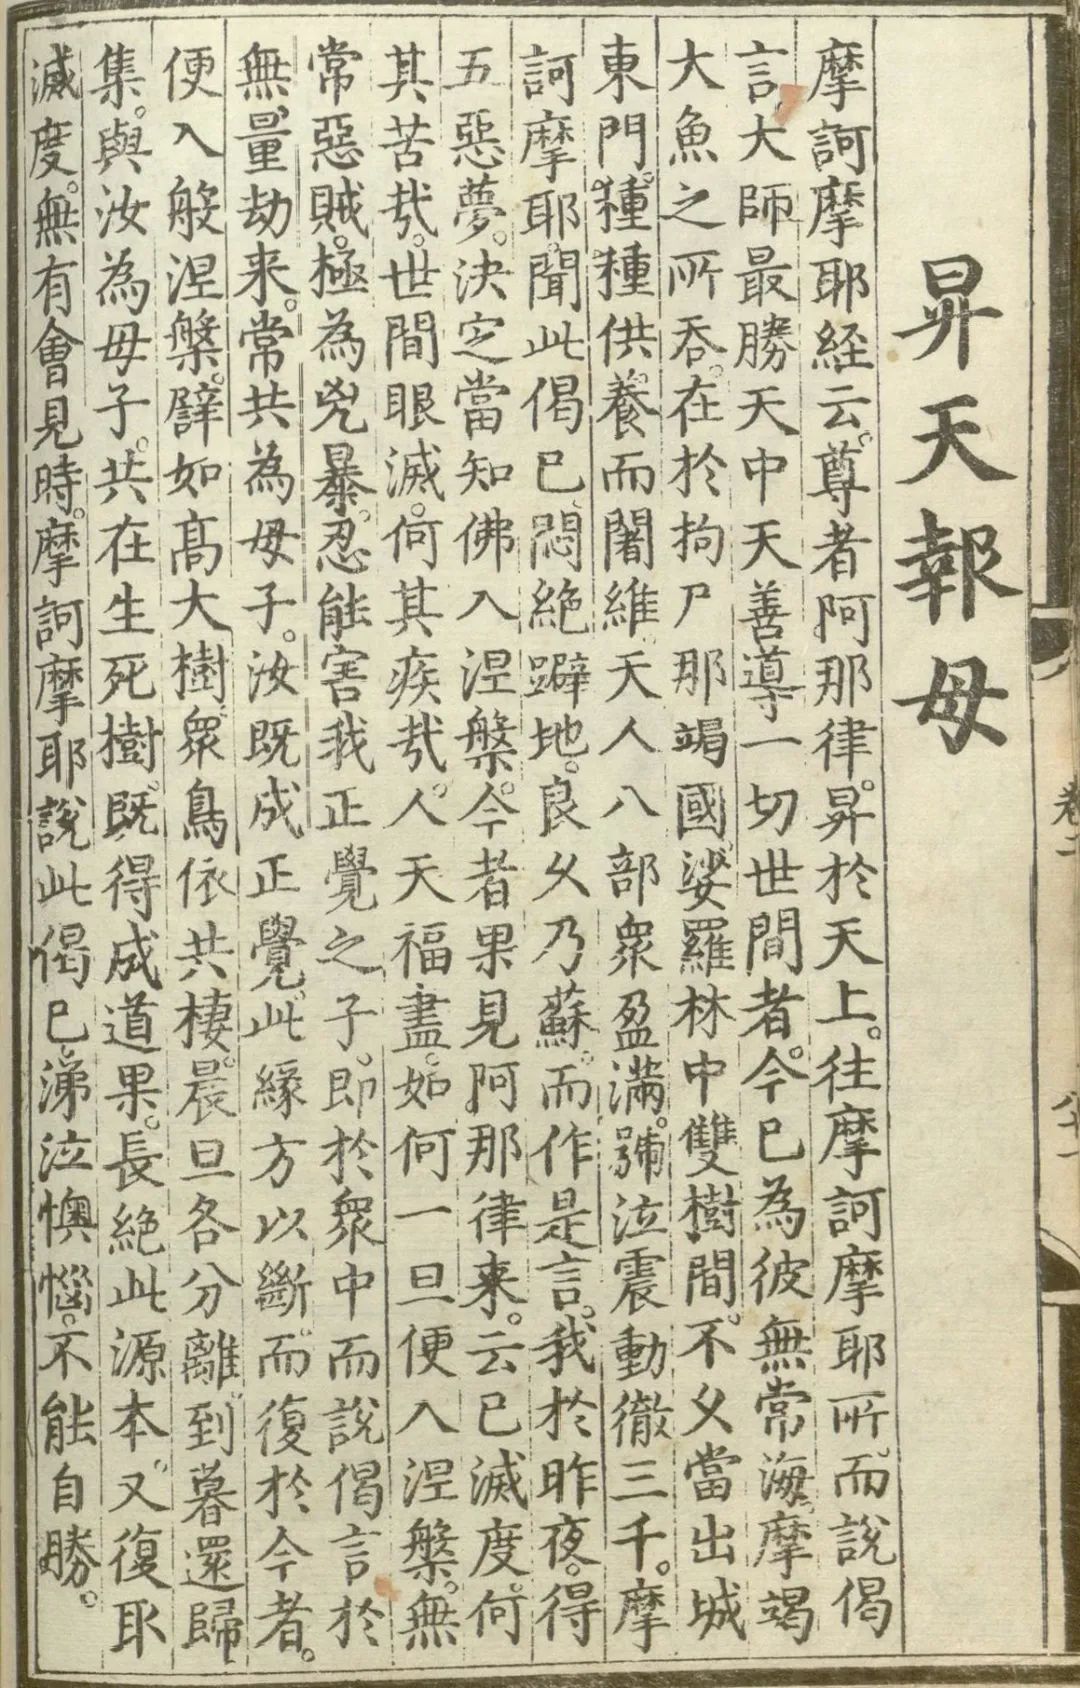 昇天報母
摩訶摩耶経云。尊者阿那律。昇於天上。往摩訶摩耶所。而說偈
言。大師最勝天中天善導一切世間者。今已為彼無常海。摩竭
大魚之所吞。在於拘尸那竭國。娑羅林中雙樹間。不久當出城
東門。種種供養而闍維。天人八部衆盈滿。號泣震動徹三千。摩
訶摩耶。聞此偈已。悶絕躃地。良久乃蘇。而作是言。我於昨夜。得
五惡夢。決定當知佛入涅槃。今者果見阿那律来。云已滅度。何
其苦哉。世間眼滅。何其疾哉。人天福盡。如何一旦便入涅槃。無
常惡賊。極為兇暴。忍能害我正覺之子。即於衆中而說偈言於
無量劫来。常共為母子。汝既成正覺。此緣方以斷。而復於今者。
便入般涅槃。譬如高大樹衆鳥依共棲。晨旦各分離。到暮還歸
集。與汝為母子。共在生死樹。既得成道果。長絕此源本。又復取
滅度。無有會見時。摩訶摩耶說此偈已。涕泣懊惱。不能自勝。
卷二
八十一